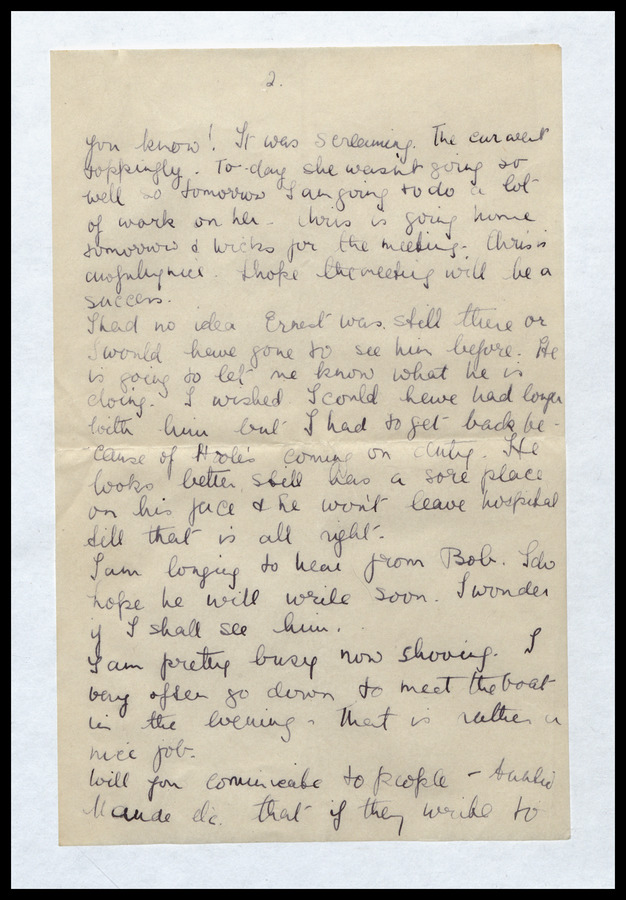 2.
you know! It was screaming. The car went
toppingly. To-day she wasn't going so
well so tomorrow I am going to do a lot
of work on her. Chris is going home
tomorrow & Wicks for the meeting. Chris is
awfully nice. I hope the meeting will be a
success.
I had no idea Ernest was still there or
I would have gone to see him before. He
is going to let me know what he is
doing. I wished I could have had longer
with him but I had to get back be-
cause of coming on duty. He
looks better, still has a sore place
on his face & he won't leave hospital
till that is all right.
I am longing to hear from Bob. I do
hope he will write soon. I wonder
if I shall see him.
I am pretty busy now shoving. I
very often go down to meet the boat
in the evening. That is rather a
nice job.
Will you comunicate to people - Auntie
Maude etc. that if they write to